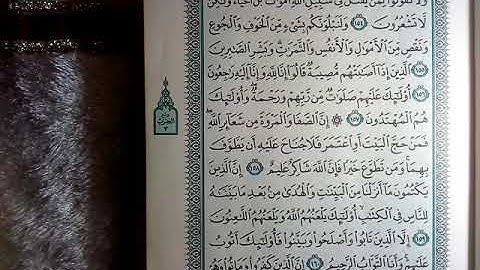 ولا تقولوا لمن يقتل في سبيل الله أموات بل أحياء ولكن
لَّا تَشْعُرُونَ ١٥٤ وَلَنَبْلُوَنَّكُم بِشَىْءٍ مِّنَ ٱلْخَوْفِ وَٱلْجُوعِ
وَنَقْصٍ مِّنَ ٱلْأَمْوَٰلِ وَٱلْأَنفُسِ وَٱلثَّمَرَٰتِ وَبَشِّرِ ٱلصَّٰبِرِينَ
١٥٥ ٱلَّذِينَ إِذَآ أَصَٰبَتْهُم مُّصِيبَةٌ قَالُوٓا۟ إِنَّا لِلَّهِ وَإِنَّآ إِلَيْهِ رَٰجِعُونَ
١٥٦ أُو۟لَٰٓئِكَ عَلَيْهِمْ صَلَوَٰتٌ مِّن رَّبِّهِمْ وَرَحْمَةٌ وَأُو۟لَٰٓئِكَ
هُمُ ٱلْمُهْتَدُونَ ١٥٧ ۞ إِنَّ ٱلصَّفَا وَٱلْمَرْوَةَ مِن شَعَآئِرِ ٱللَّهِ
فَمَنْ حَجَّ ٱلْبَيْتَ أَوِ ٱعْتَمَرَ فَلَا جُنَاحَ عَلَيْهِ أَن يَطَّوَّفَ
بِهِمَا وَمَن تَطَوَّعَ خَيْرًا فَإِنَّ ٱللَّهَ شَاكِرٌ عَلِيمٌ ١٥٨ إِنَّ ٱلَّذِينَ
يَكْتُمُونَ مَآ أَنزَلْنَا مِنَ ٱلْبَيِّنَٰتِ وَٱلْهُدَىٰ مِنۢ بَعْدِ مَا بَيَّنَّٰهُ
لِلنَّاسِ فِى ٱلْكِتَٰبِ أُو۟لَٰٓئِكَ يَلْعَنُهُمُ ٱللَّهُ وَيَلْعَنُهُمُ ٱللَّٰعِنُونَ
١٥٩ إِلَّا ٱلَّذِينَ تَابُوا۟ وَأَصْلَحُوا۟ وَبَيَّنُوا۟ فَأُو۟لَٰٓئِكَ أَتُوبُ
عَلَيْهِمْ وَأَنَا ٱلتَّوَّابُ ٱلرَّحِيمُ ١٦٠ إِنَّ ٱلَّذِينَ كَفَرُوا۟ وَمَاتُوا۟ وَهُمْ